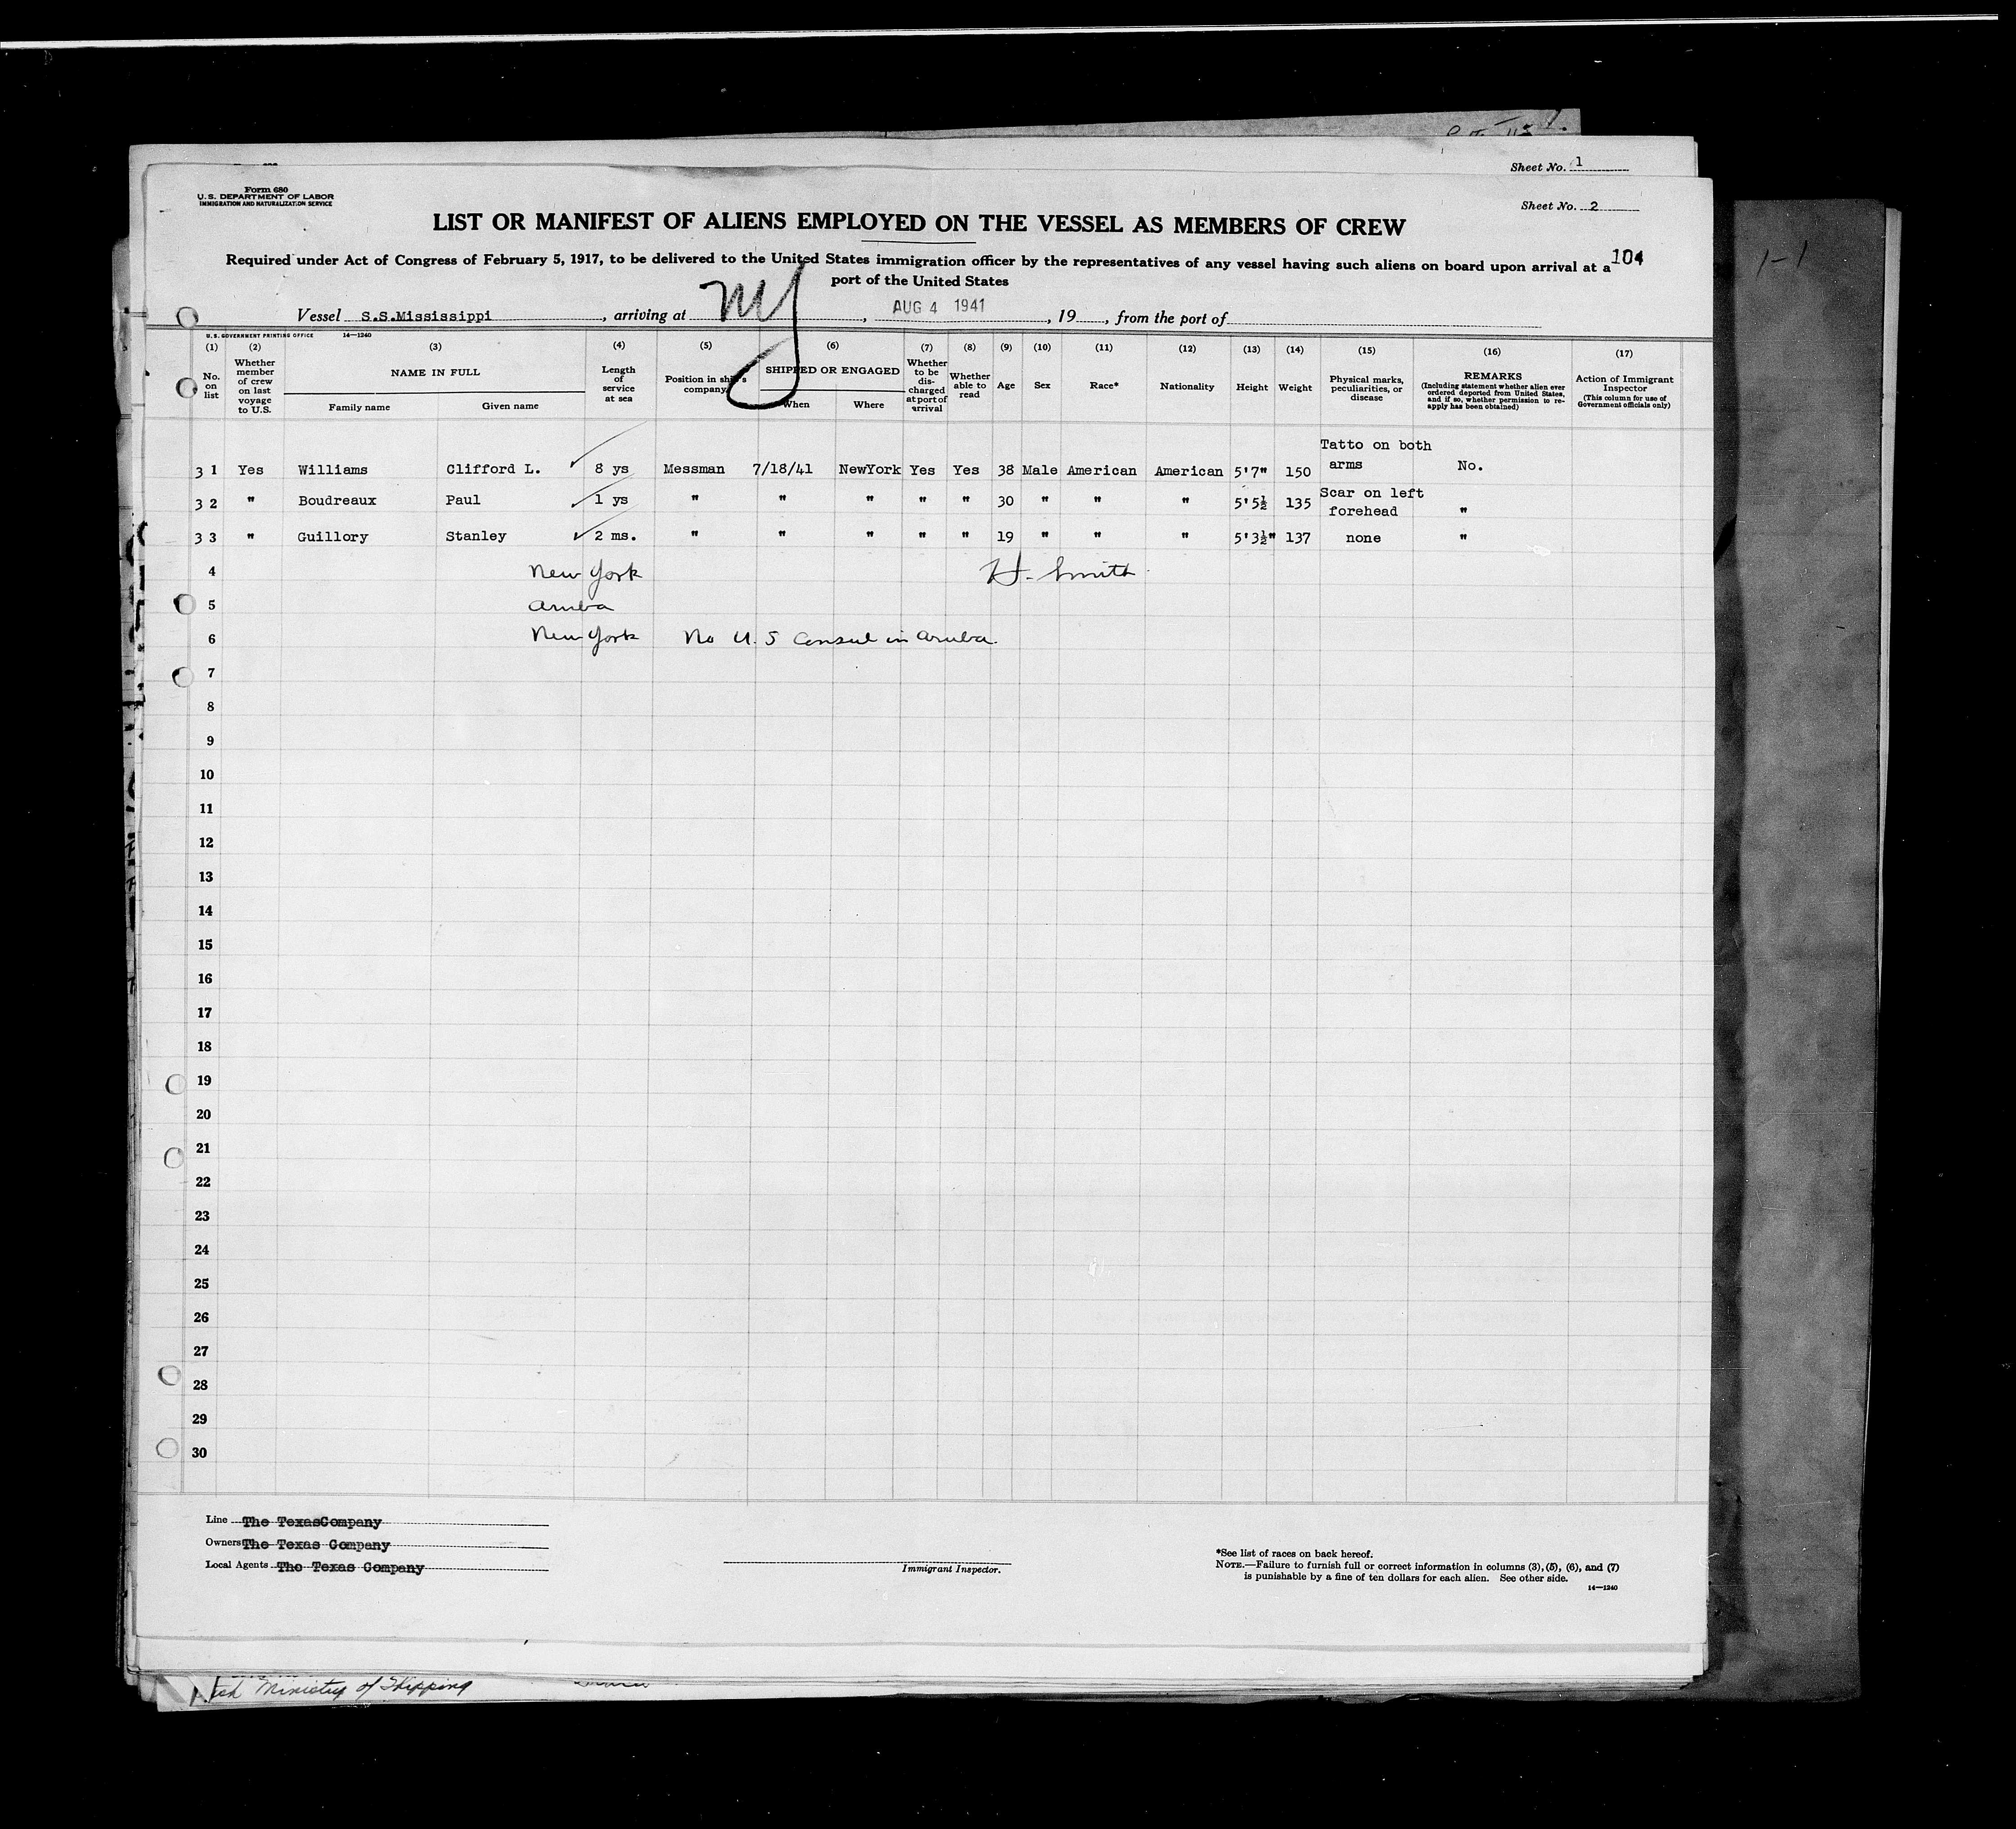 Sheet No. 1
Form 680
U. S. DEPARTMENT OF LABOR
IMMIGRATION AND NATURALIZATION SERVICE
Sheet No. 2
LIST OR MANIFEST OF ALIENS EMPLOYED ON THE VESSEL AS MEMBERS OF CREW
104
Required under Act of Congress of February 5, 1917, to be delivered to the United States immigration officer by the representatives of any vessel having such aliens on board upon arrival at a
port of the United States
Vessel S.S.Mississippi, arriving at NY, AUG 4 1941, 19, from the port of
U. S. GOVERNMENT PRINTING OFFICE 14—1240
(1) (2) (3) (4) (5) (6) (7) (8) (9) (10) (11) (12) (13) (14) (15) (16) (17)
No. on list
Whether member of crew on last voyage to U.S.
NAME IN FULL
Family name Given name
Length of service at sea
Position in ship's company
SHIPPED OR ENGAGED
When Where
Whether to be discharged at port of arrival
Whether able to read
Age Sex Race* Nationality Height Weight
Physical marks, peculiarities, or disease
REMARKS
(Including statement whether alien ever ordered deported from United States, and if so, whether permission to re-apply has been obtained)
Action of Immigrant Inspector
(This column for use of Government officials only)
3 1 Yes Williams Clifford L. 8 ys Messman 7/18/41 NewYork Yes Yes 38 Male American American 5'7" 150 Tatto on both arms No.
3 2 " Boudreaux Paul 1 ys " " " " " 30 " " " 5'5½ 135 Scar on left forehead "
3 3 " Guillory Stanley 2 ms. " " " " " 19 " " " 5'3½" 137 none "
4 New York H. Smith
5 Aruba
6 New York No U.S Consul in Aruba.
7
8
9
10
11
12
13
14
15
16
17
18
19
20
21
22
23
24
25
26
27
28
29
30
Line The TexasCompany
Owners The Texas Company
Local Agents The Texas Company
Immigrant Inspector.
*See list of races on back hereof.
NOTE.—Failure to furnish full or correct information in columns (3), (5), (6), and (7)
is punishable by a fine of ten dollars for each alien. See other side.
14—1240
Ministry of Shipping
1-1